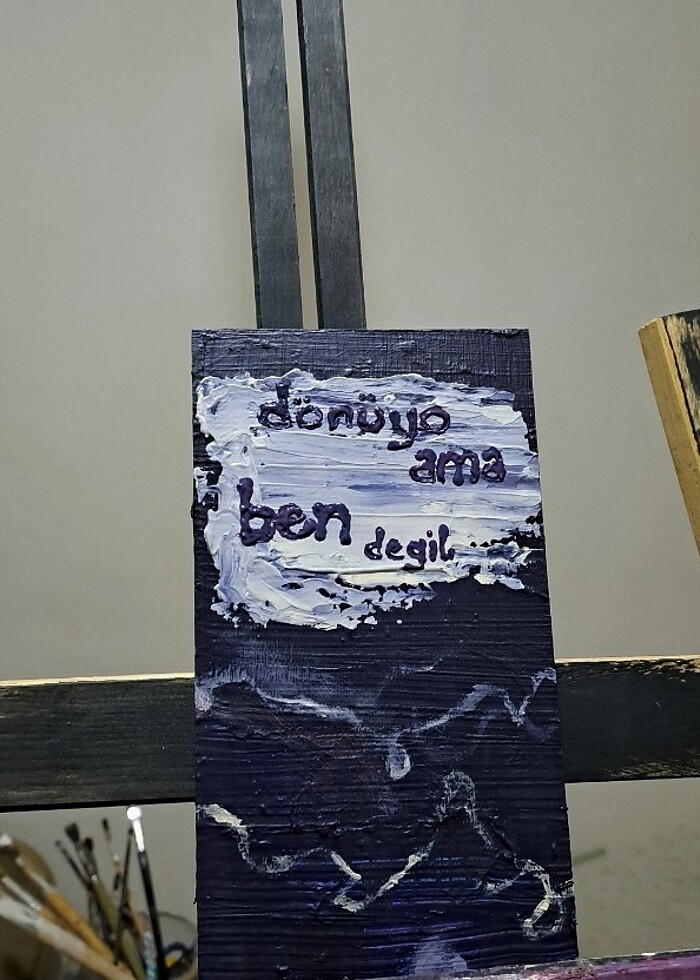 dönüyo
ama
ben degil